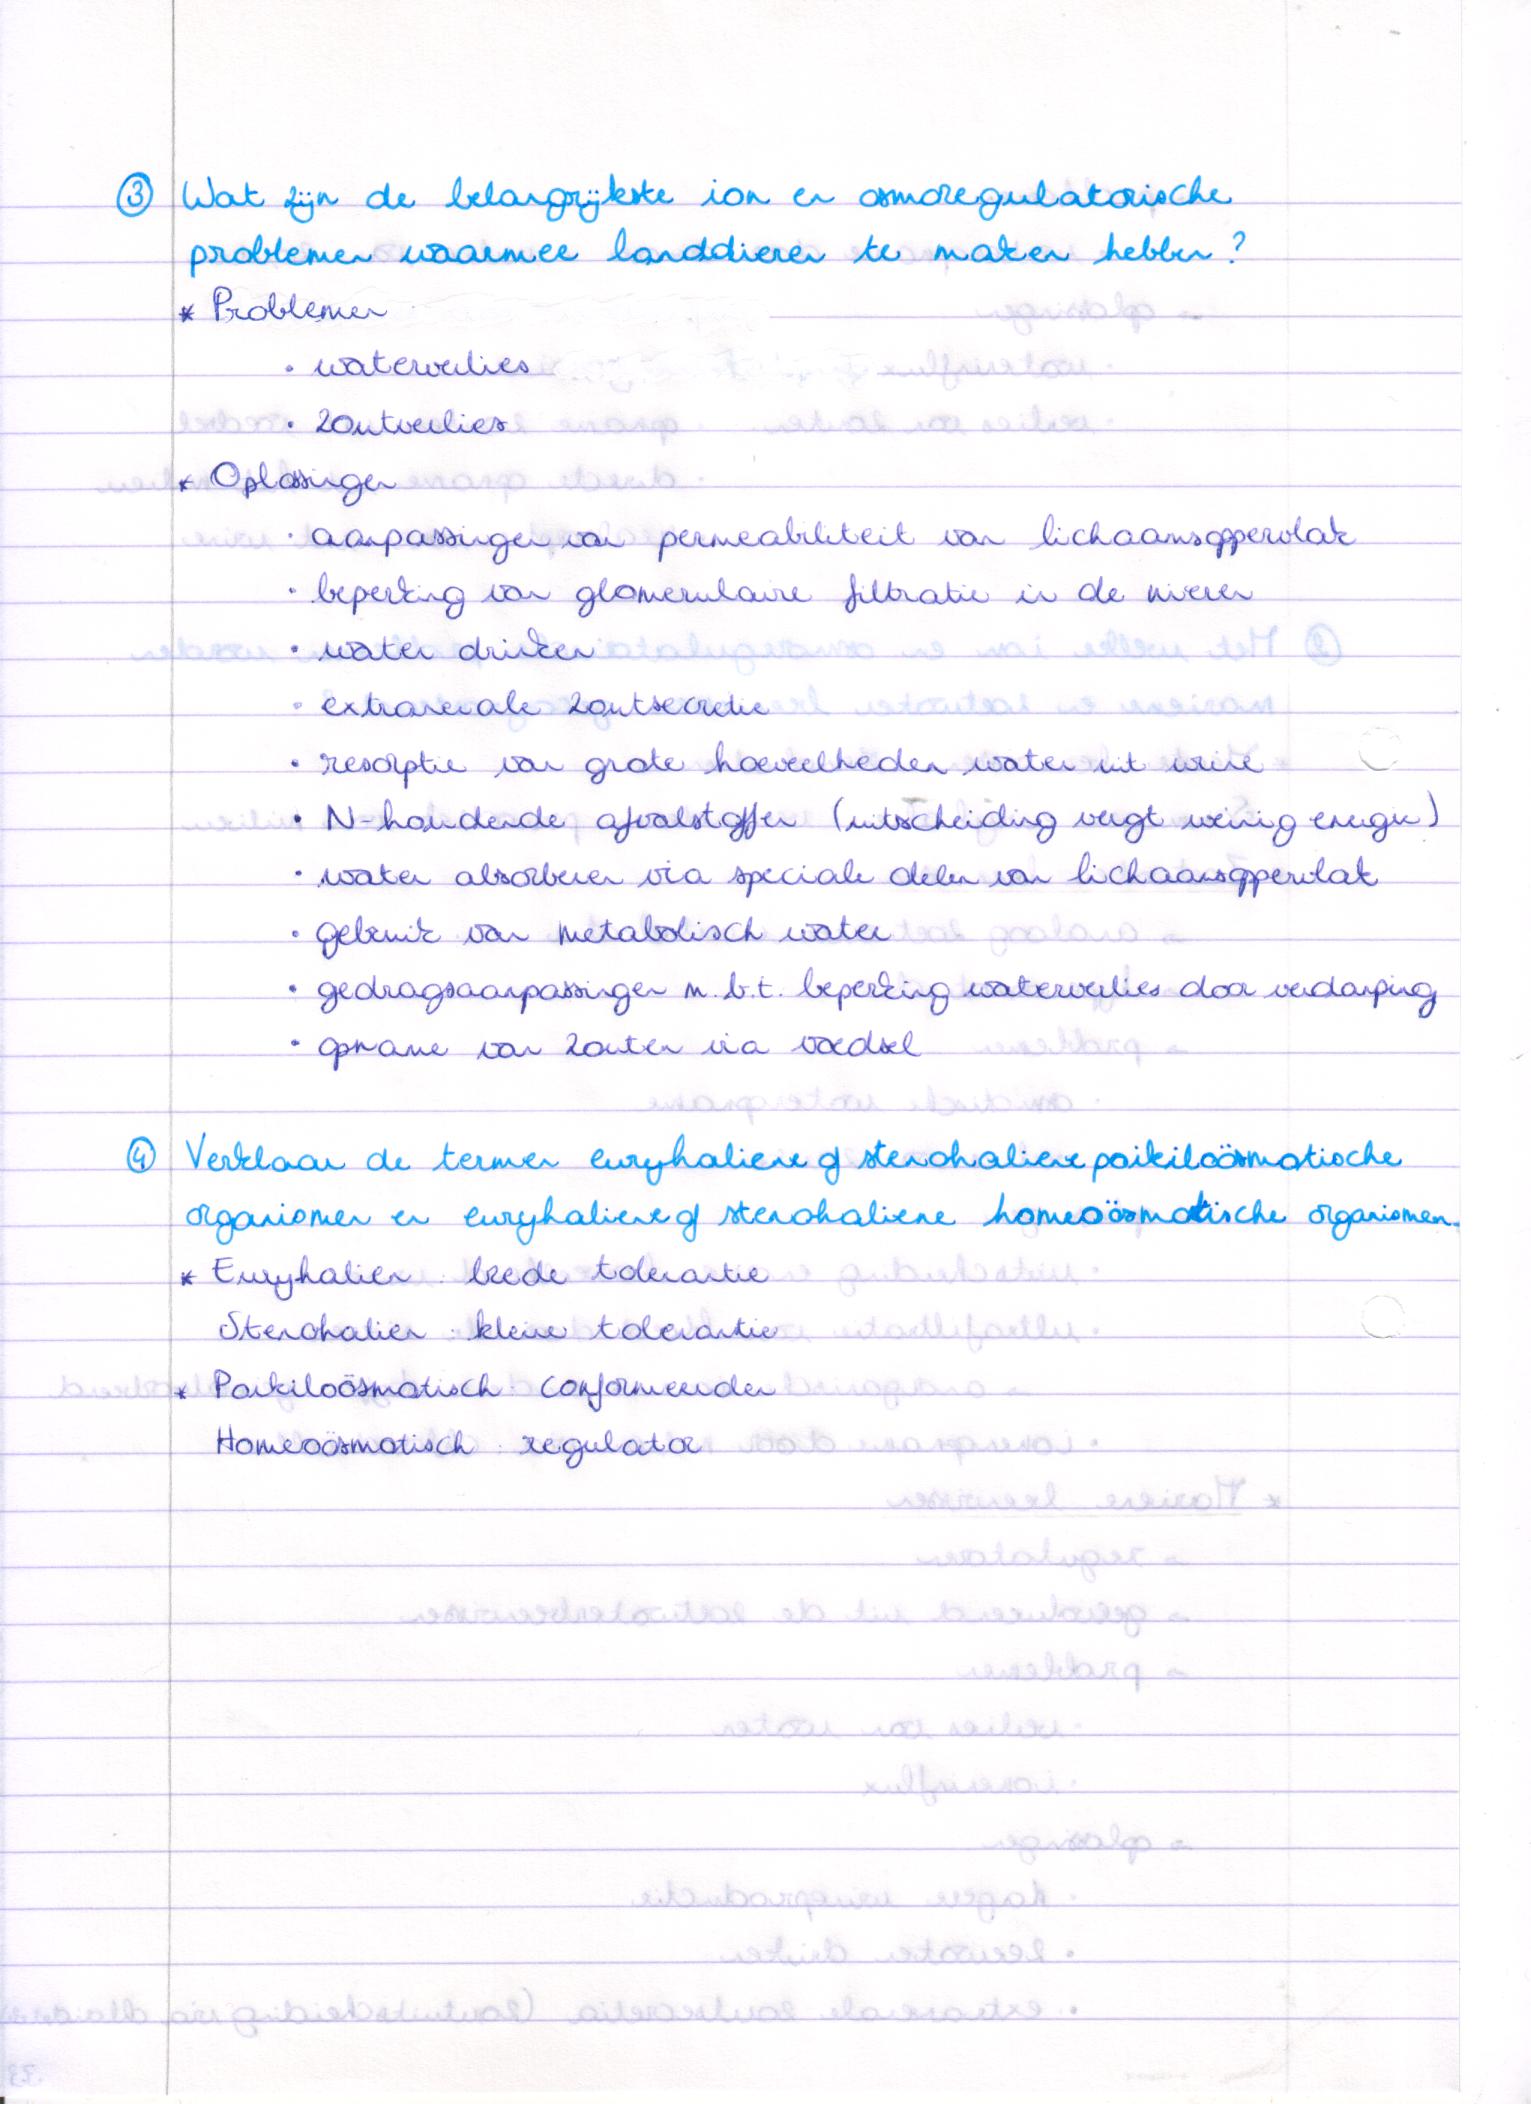 ③ Wat zijn de belangrijkste ion en osmoregulatorische
problemen waarmee landdieren te maken hebben?
* Problemen
· waterverlies
· zoutverlies
* Oplossingen
· aanpassingen van permeabiliteit van lichaamsoppervlak
· beperking van glomerulaire filtratie in de nieren
· water drinken
· extrarenale zoutsecretie
· resorptie van grote hoeveelheden water uit urine
· N-houdende afvalstoffen (uitscheiding vergt weinig energie)
· water absorberen via speciale delen van lichaamsoppervlak
· gebruik van metabolisch water
· gedragsaanpassingen m.b.t. beperking waterverlies door verdamping
· opname van zouten via voedsel
④ Verklaar de termen euryhaliene of stenohaliene poikiloösmotische
organismen en euryhaliene of stenohaliene homeoösmotische organismen.
* Euryhalien : brede tolerantie
Stenohalien : kleine tolerantie
* Poikiloösmotisch : conformeerder
Homeoösmotisch : regulator